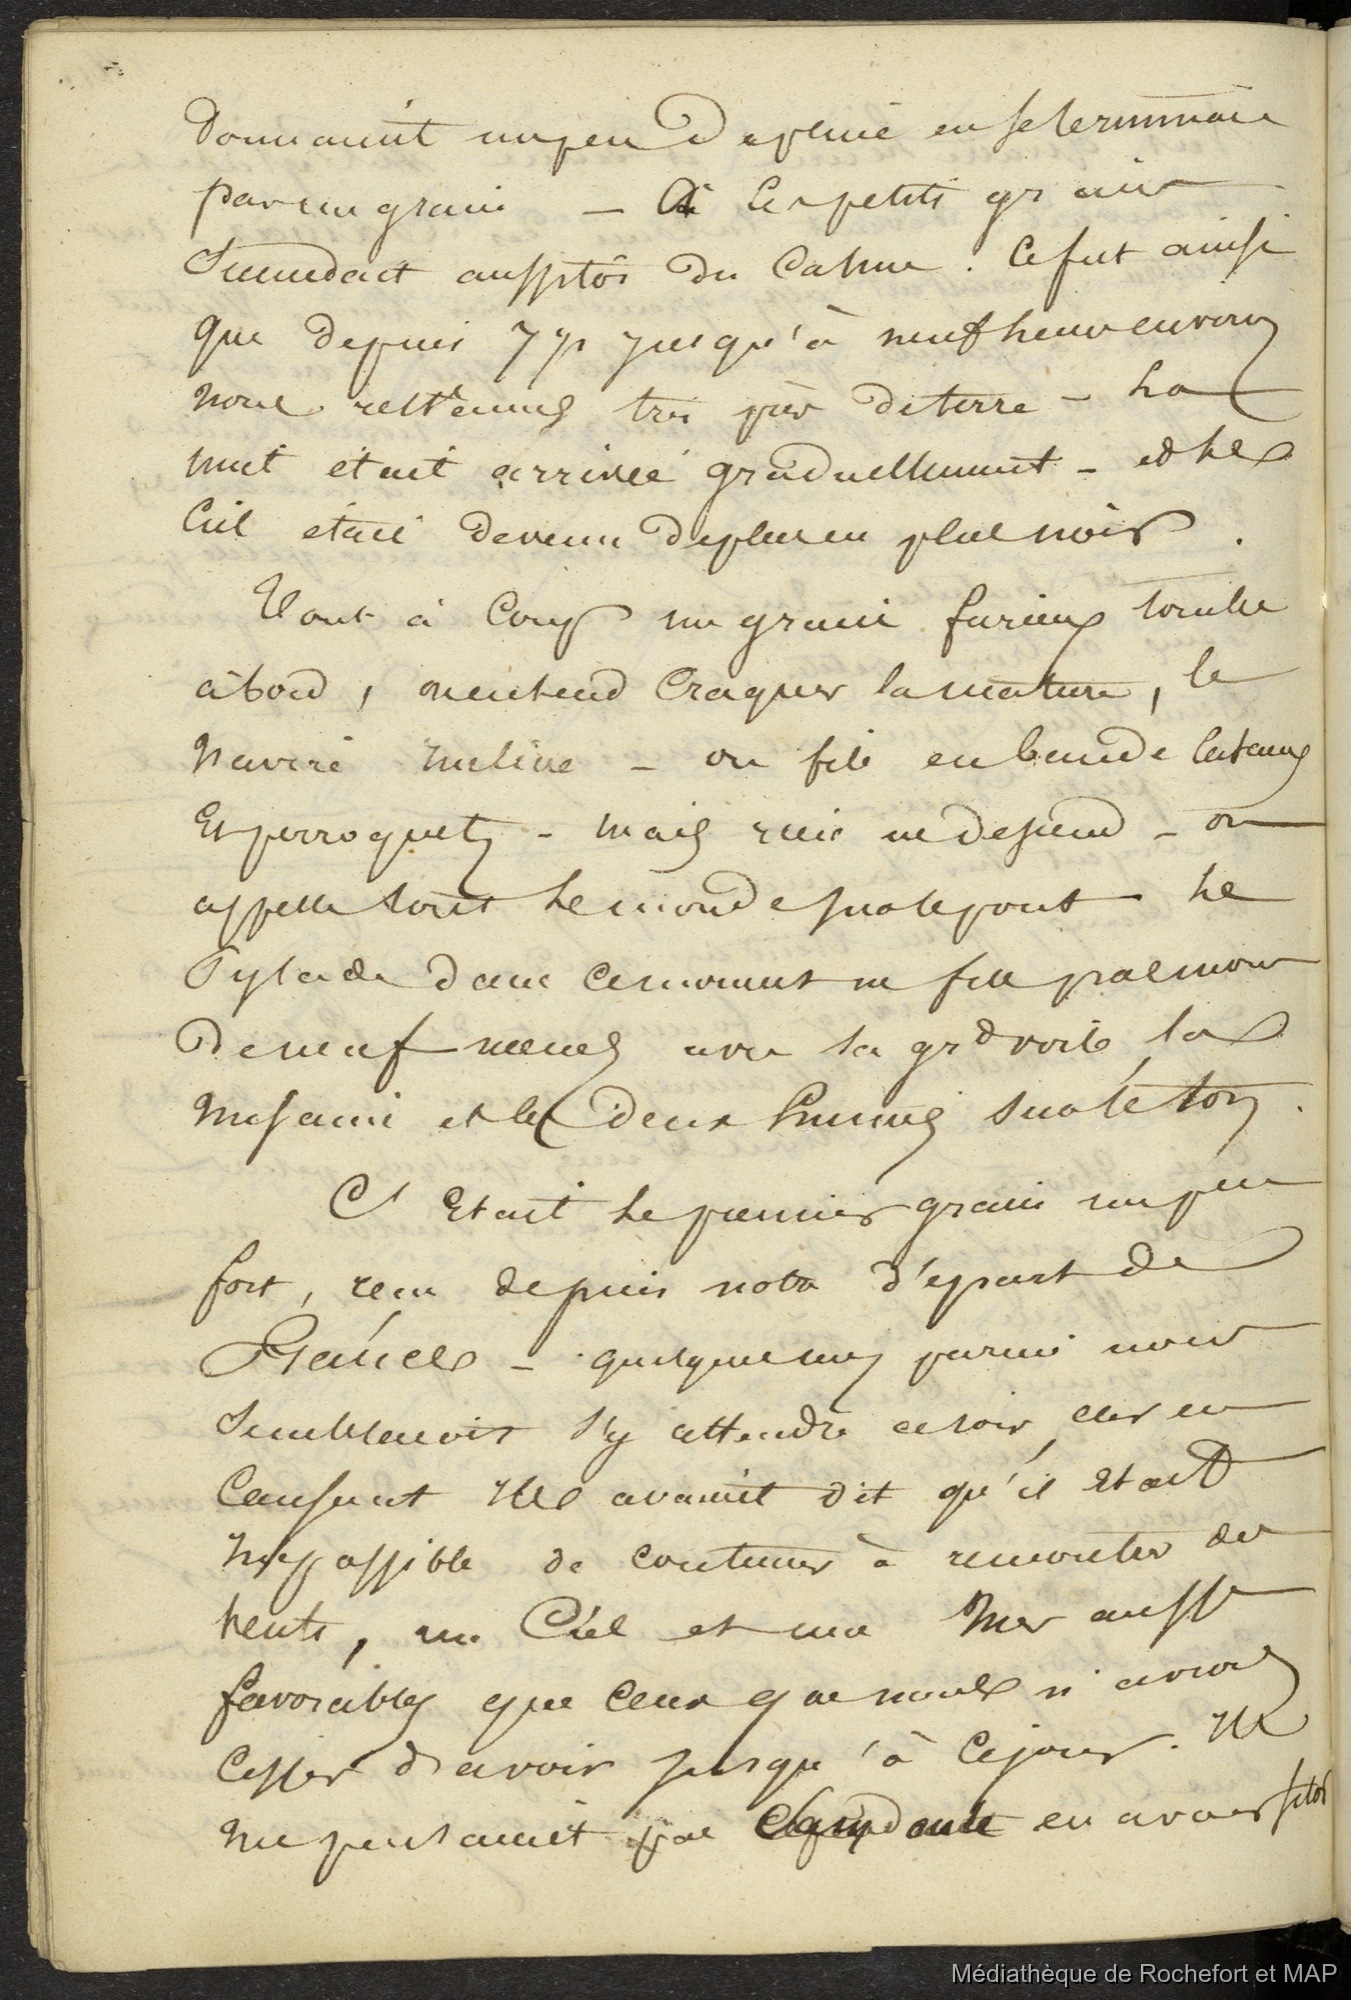 donnaient un peu de pluie en se terminant
par un grain — A ces petits grains
succedait aussitôt du calme. Ce fut ainsi
que depuis 7 jusqu'à neuf heures environ
nous restâmes très près de terre – La
nuit était arrivée graduellement – et le
ciel était devenu de plus en plus noir.
Tout à coup un grain furieux tombe
à bord, on entend craquer la mature, le
navire incline – on file en bande
et perroquets – mais rien ne descend – on
appelle tout le monde sur le pont – Le
Pylade dans ce moment ne fila pas moins
de neuf nœuds avec sa grde voile, la
misaine et les deux huniers sur le ton.
C'était le premier grain un peu
fort, reçu depuis notre départ de
France – quelques uns parmi nous
semblaient s'y attendre ce soir, car en
causant ils avaient dit qu'il était
impossible de continuer à rencontrer des
vents, un ciel et une mer aussi
favorables que ceux que nous n'avions
cesser d'avoir jusqu'à ce jour. Ils
ne pensaient pas cependant en avoir sitôt
Médiathèque de Rochefort et MAP